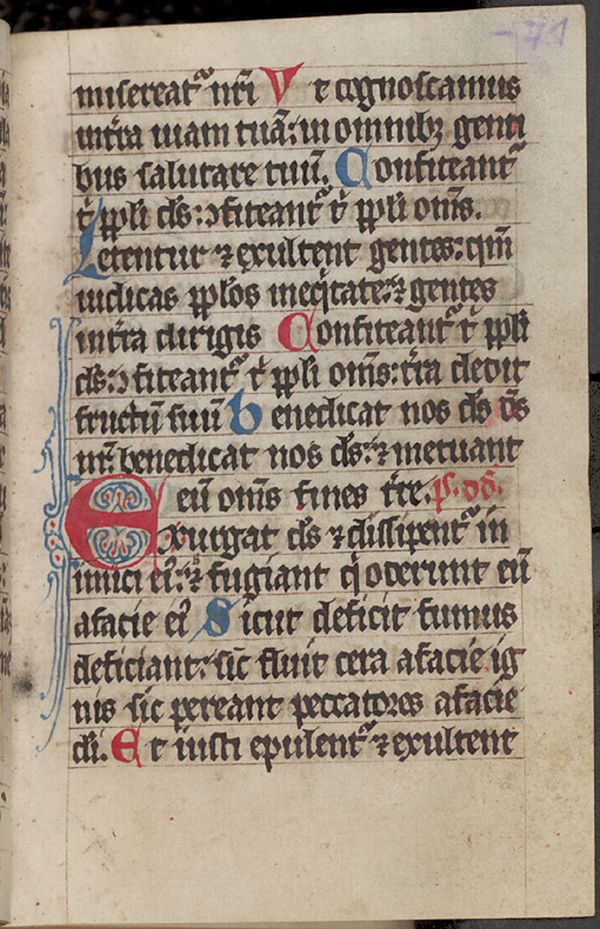 74
misereat᷑ nr̄i Vt cognoscamus
in tr̄a uiam tuā: in omnibꝫ genti
bus salutare tuū. Confiteant᷑
t̄ ppl̄i ds̄: ꝯfiteant᷑ t̄ ppl̄i om̄s.
Letentur ⁊ exultent gentes: qm̄
iudicas ppl̄os in eq̇tate: ⁊ gentes
in tr̄a dirigis Confiteant᷑ t̄ ppl̄i
ds̄: ꝯfiteant᷑ t̄ ppl̄i om̄s: tr̄a dedit
fructū suū benedicat nos ds̄ ds̄
nr̄. benedicat nos ds̄: ⁊ metuant
eū om̄s fines tr̄e. p̄s. dd̄.
Exurgat ds̄ ⁊ dissipent᷑ in
imici ei᷒: ⁊ fugiant q̇ oderunt eū
a facie ei᷒ Sicut deficit fumus
deficiant: sic̄ fluit cera a facie ig
nis sic pereant peccatores a facie
di̅. Et iusti epulent᷑ ⁊ exultent